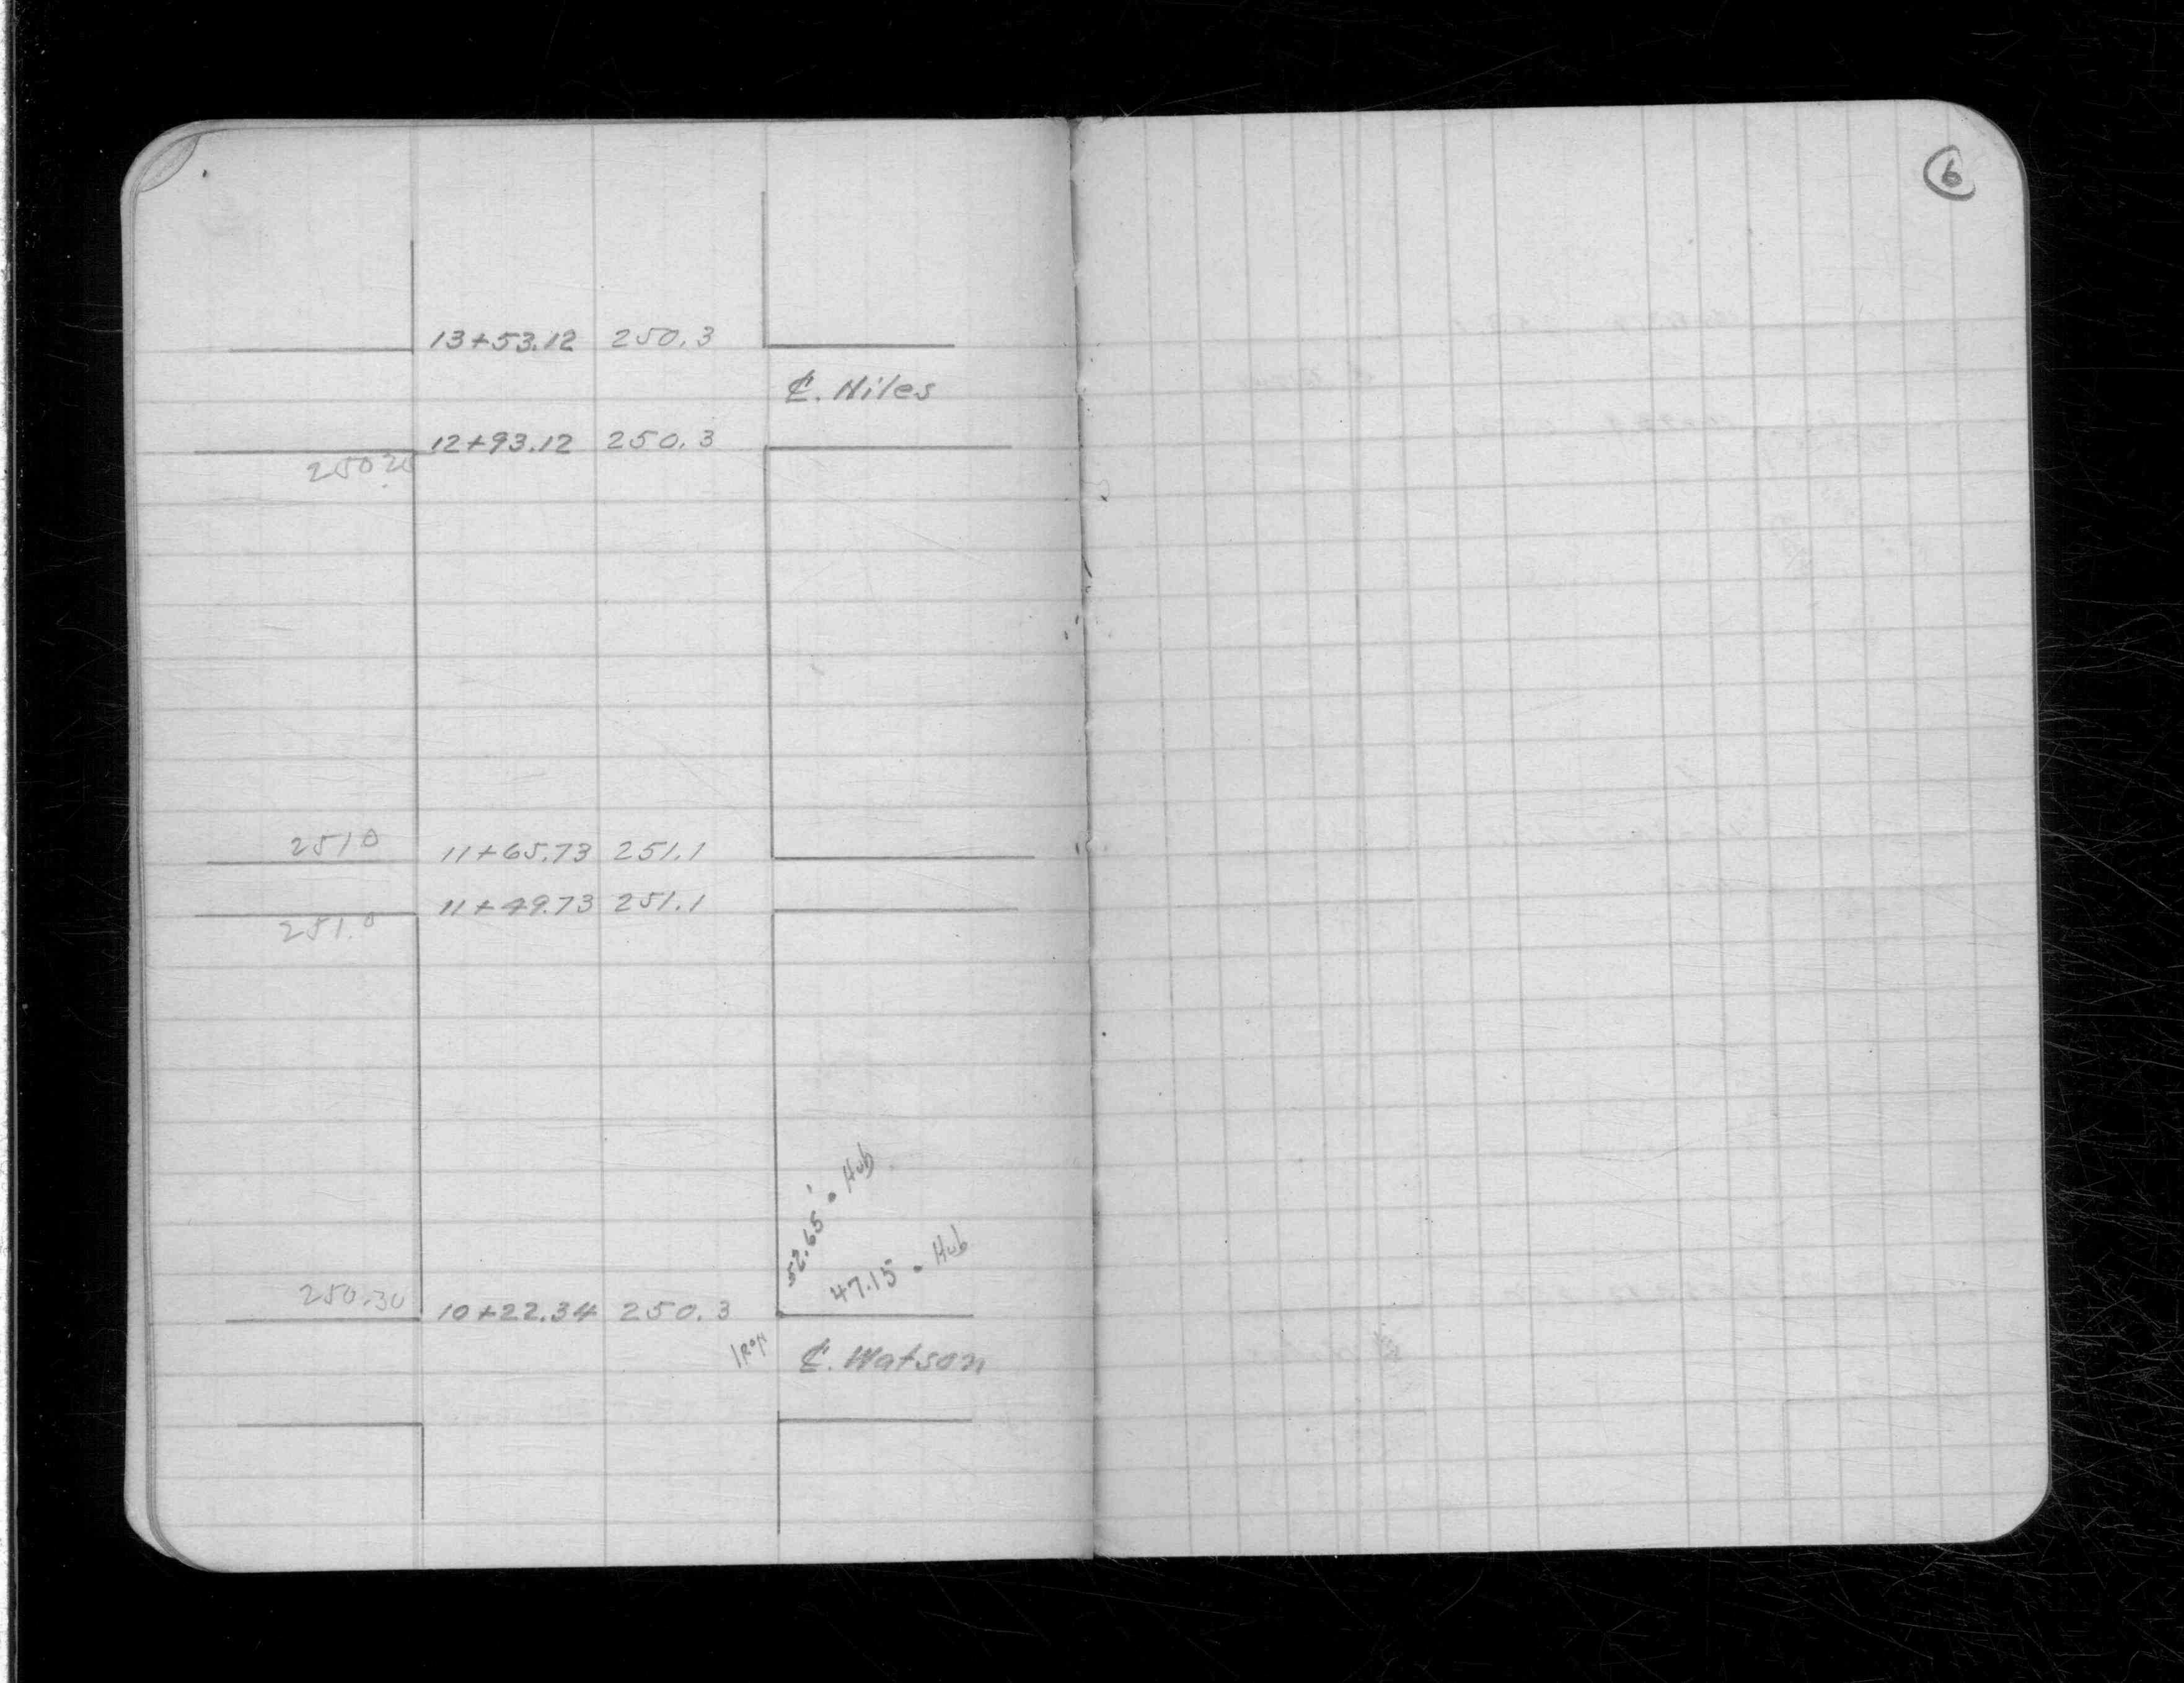 6
13+53.12 250.3
₵. Niles
12+93.12 250.3
250.20
251.0 11+65.73 251.1
11+49.73 251.1
251.0
52.65' Hub
47.15 Hub
250.30 10+22.34 250.3
₵. Watson